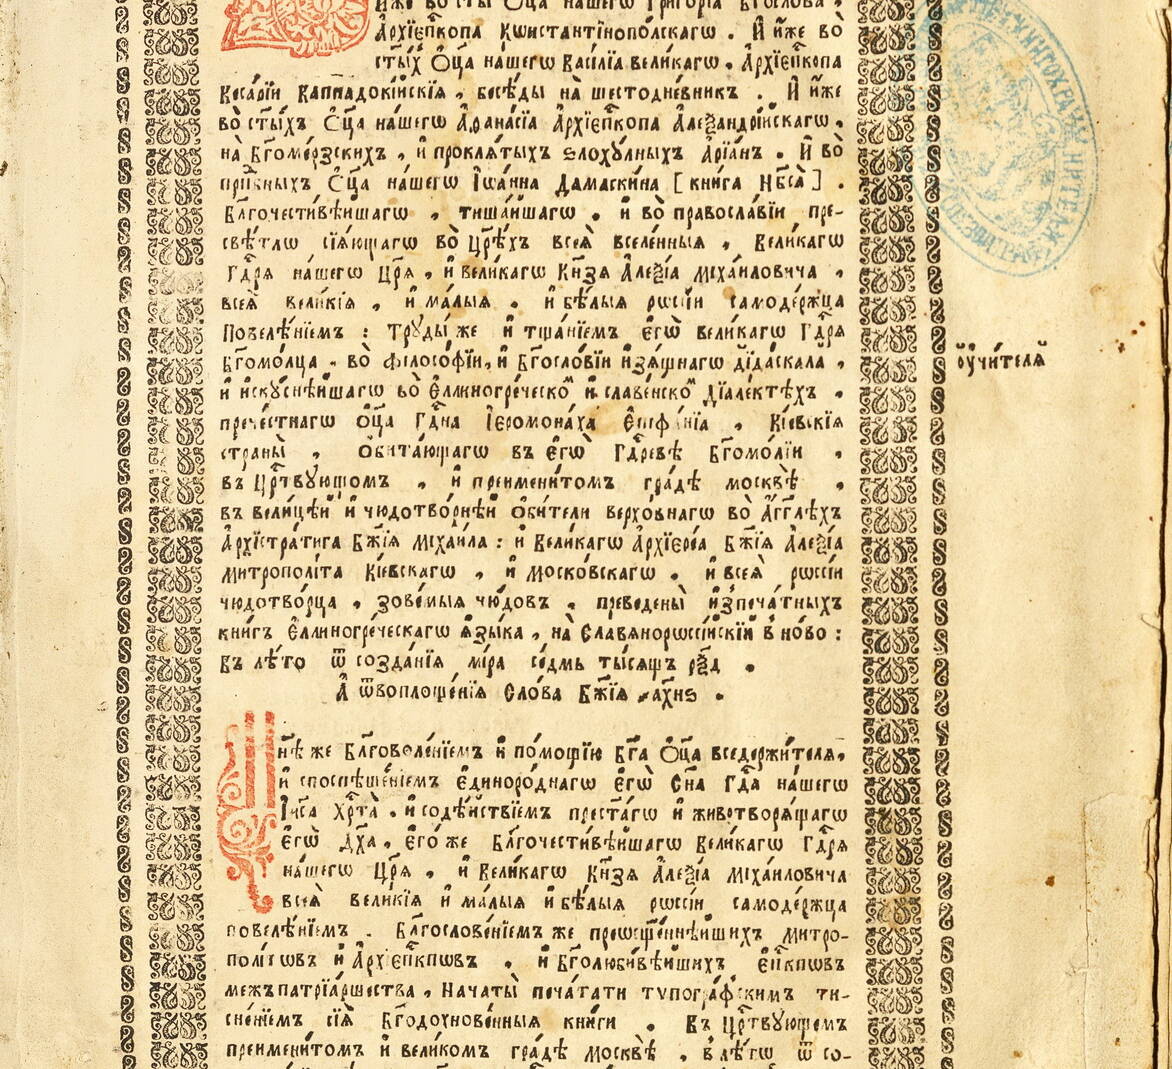 Иже во сты́хъ Ѻ҆ца̀ на́шегѡ Григо́рїа Бг҃осло́ва,
А҆рхїєпⷭ҇копа Кѡнстанті́нопо́лскагѡ . И҆ и҆́же во
сты́хъ Ѻ҆ц҃а на́шегѡ Васи́лїа вели́кагѡ . А҆рхїєпⷭ҇копа
Кесарі́и Каппадокі́йскїѧ , бесѣ́ды на̀ шестодне́вникъ . И҆ и҆́же
во̀ сты́хъ Ѻ҆ц҃а на́шегѡ А҆ѳана́сїа А҆рхїєпⷭ҇копа А҆леѯандрі́йскагѡ ,
на̀ Бг҃оме́рзскихъ , и҆ проклѧ́тыхъ ѕлоху́лныхъ А҆рїа́нъ . И҆ во̀
прпⷣбныхъ Ѻ҆ц҃а на́шегѡ І҆ѡа́нна Дамаски́на [ кни́га Нб҃са̀ ] .
Бл҃гочести́вѣишагѡ , тиша́ишагѡ . и҆ во̀ правосла́вїи пре-
свѣ́тлѡ сїѧ́ющагѡ во̀ Цр҃ѣ́хъ всеѧ̀ вселе́нныѧ , Вели́кагѡ
Гдⷭ҇рѧ на́шегѡ Цр҃ѧ̀ , и҆ вели́кагѡ Кнѧ́зѧ А҆леѯі́а Мїха́иловича ,
всеѧ̀ вели́кїѧ , и҆ ма́лыѧ . и҆ бѣ́лыѧ рѡсі́и самоде́ржца
Повелѣ́нїемъ : Труды́ же и҆ тща́нїемъ є҆гѡ̀ вели́кагѡ Гдⷭ҇рѧ
Бг҃омо́лца . во̀ фїлосо́фїи , и҆ Бг҃осло́вїи и҆зѧ́щнагѡ дїда́скала ,
и҆ и҆ску́снѣишагѡ во̀ Е҆ллиногре́ческоⷨ и҆ славе́нскоⷨ Дїале́ктѣхъ .
пречⷭ҇тнагѡ ѻ҆ц҃а Гдⷭ҇на І҆еромона́ха Е҆пїфа́нїа , Кі́евскїѧ
страны̀ , ѻ҆бита́ющагѡ въ є҆гѡ̀ Гдⷭ҇ревѣ Бг҃омо́лїи ,
въ Црⷭ҇твующомъ , и҆ преимени́томъ гра́дѣ москвѣ̀ ,
въ вели́цѣй и҆ чюдотво́рнѣй ѻ҆би́тели верхо́внагѡ во А҆́гг҃лѣхъ
А҆рхїстра́тига Бж҃їѧ Мїхаи́ла : и҆ Вели́кагѡ А҆рхїере́а Бж҃їѧ А҆леѯі́а
Митрополі́та Кі́евскагѡ , и҆ Моско́вскагѡ . и҆ всеѧ̀ рѡссі́и
чюдотво́рца , зово́мыѧ чю́довъ , преведены̀ и҆зпеча́тныхъ
кни́гъ Е҆ллиногре́ческагѡ ѧ҆зы́ка , на̀ Славѧнорѡссі́йскїй в̾но́во :
въ лѣ́то ѿ созда́нїѧ мі́ра се́дмь ты́сѧщъ рѯ҃д .
А҆ ѿвоплоще́нїѧ Сло́ва Бж҃їѧ ҂ахн҃ѕ .
Нн҃ѣ же Бл҃говоле́нїемъ и҆ по́мощїю Бг҃а Ѻ҆ц҃а вседержи́телѧ ,
и҆ споспѣше́нїемъ є҆диноро́днагѡ є҆гѡ̀ Сн҃а Гдⷭ҇а на́шегѡ
І҆и҃са Хрⷭ҇та̀ . и҆ содѣ́йствїемъ престⷭ҇а́гѡ и҆ животворѧ́щагѡ
є҆гѡ̀ Дх҃а , є҆гѡ́ же Бл҃гочести́вѣйшагѡ Вели́кагѡ Гдⷭ҇рѧ
на́шегѡ Цр҃ѧ̀ , и҆ Вели́кагѡ Кнѧ́зѧ А҆леѯі́а Мїха́иловича
всеѧ̀ вели́кїѧ и҆ ма́лыѧ и҆ бѣ́лыѧ рѡссі́и самоде́ржца
повелѣ́нїемъ . Бл҃гослове́нїемъ же преѡсщ҃е́ннѣйшихъ митро-
полі́тѡвъ и҆ А҆рхїєпⷭ҇кпѡвъ . и҆ Бг҃олюби́вѣйшихъ є҆пⷭ҇кпѡвъ
межъпатрїа́ршества , Нача́ты печа́тати тѷпогра́фскимъ ти-
сне́нїемъ сїѧ̀ Бг҃одохнове́нныѧ кни́ги . Въ Црⷭ҇твующемъ
преимени́томъ и҆ вели́комъ гра́дѣ москвѣ̀ . в̾лѣ́тѡ ѿ со-
ᲂу҆чи́телѧ